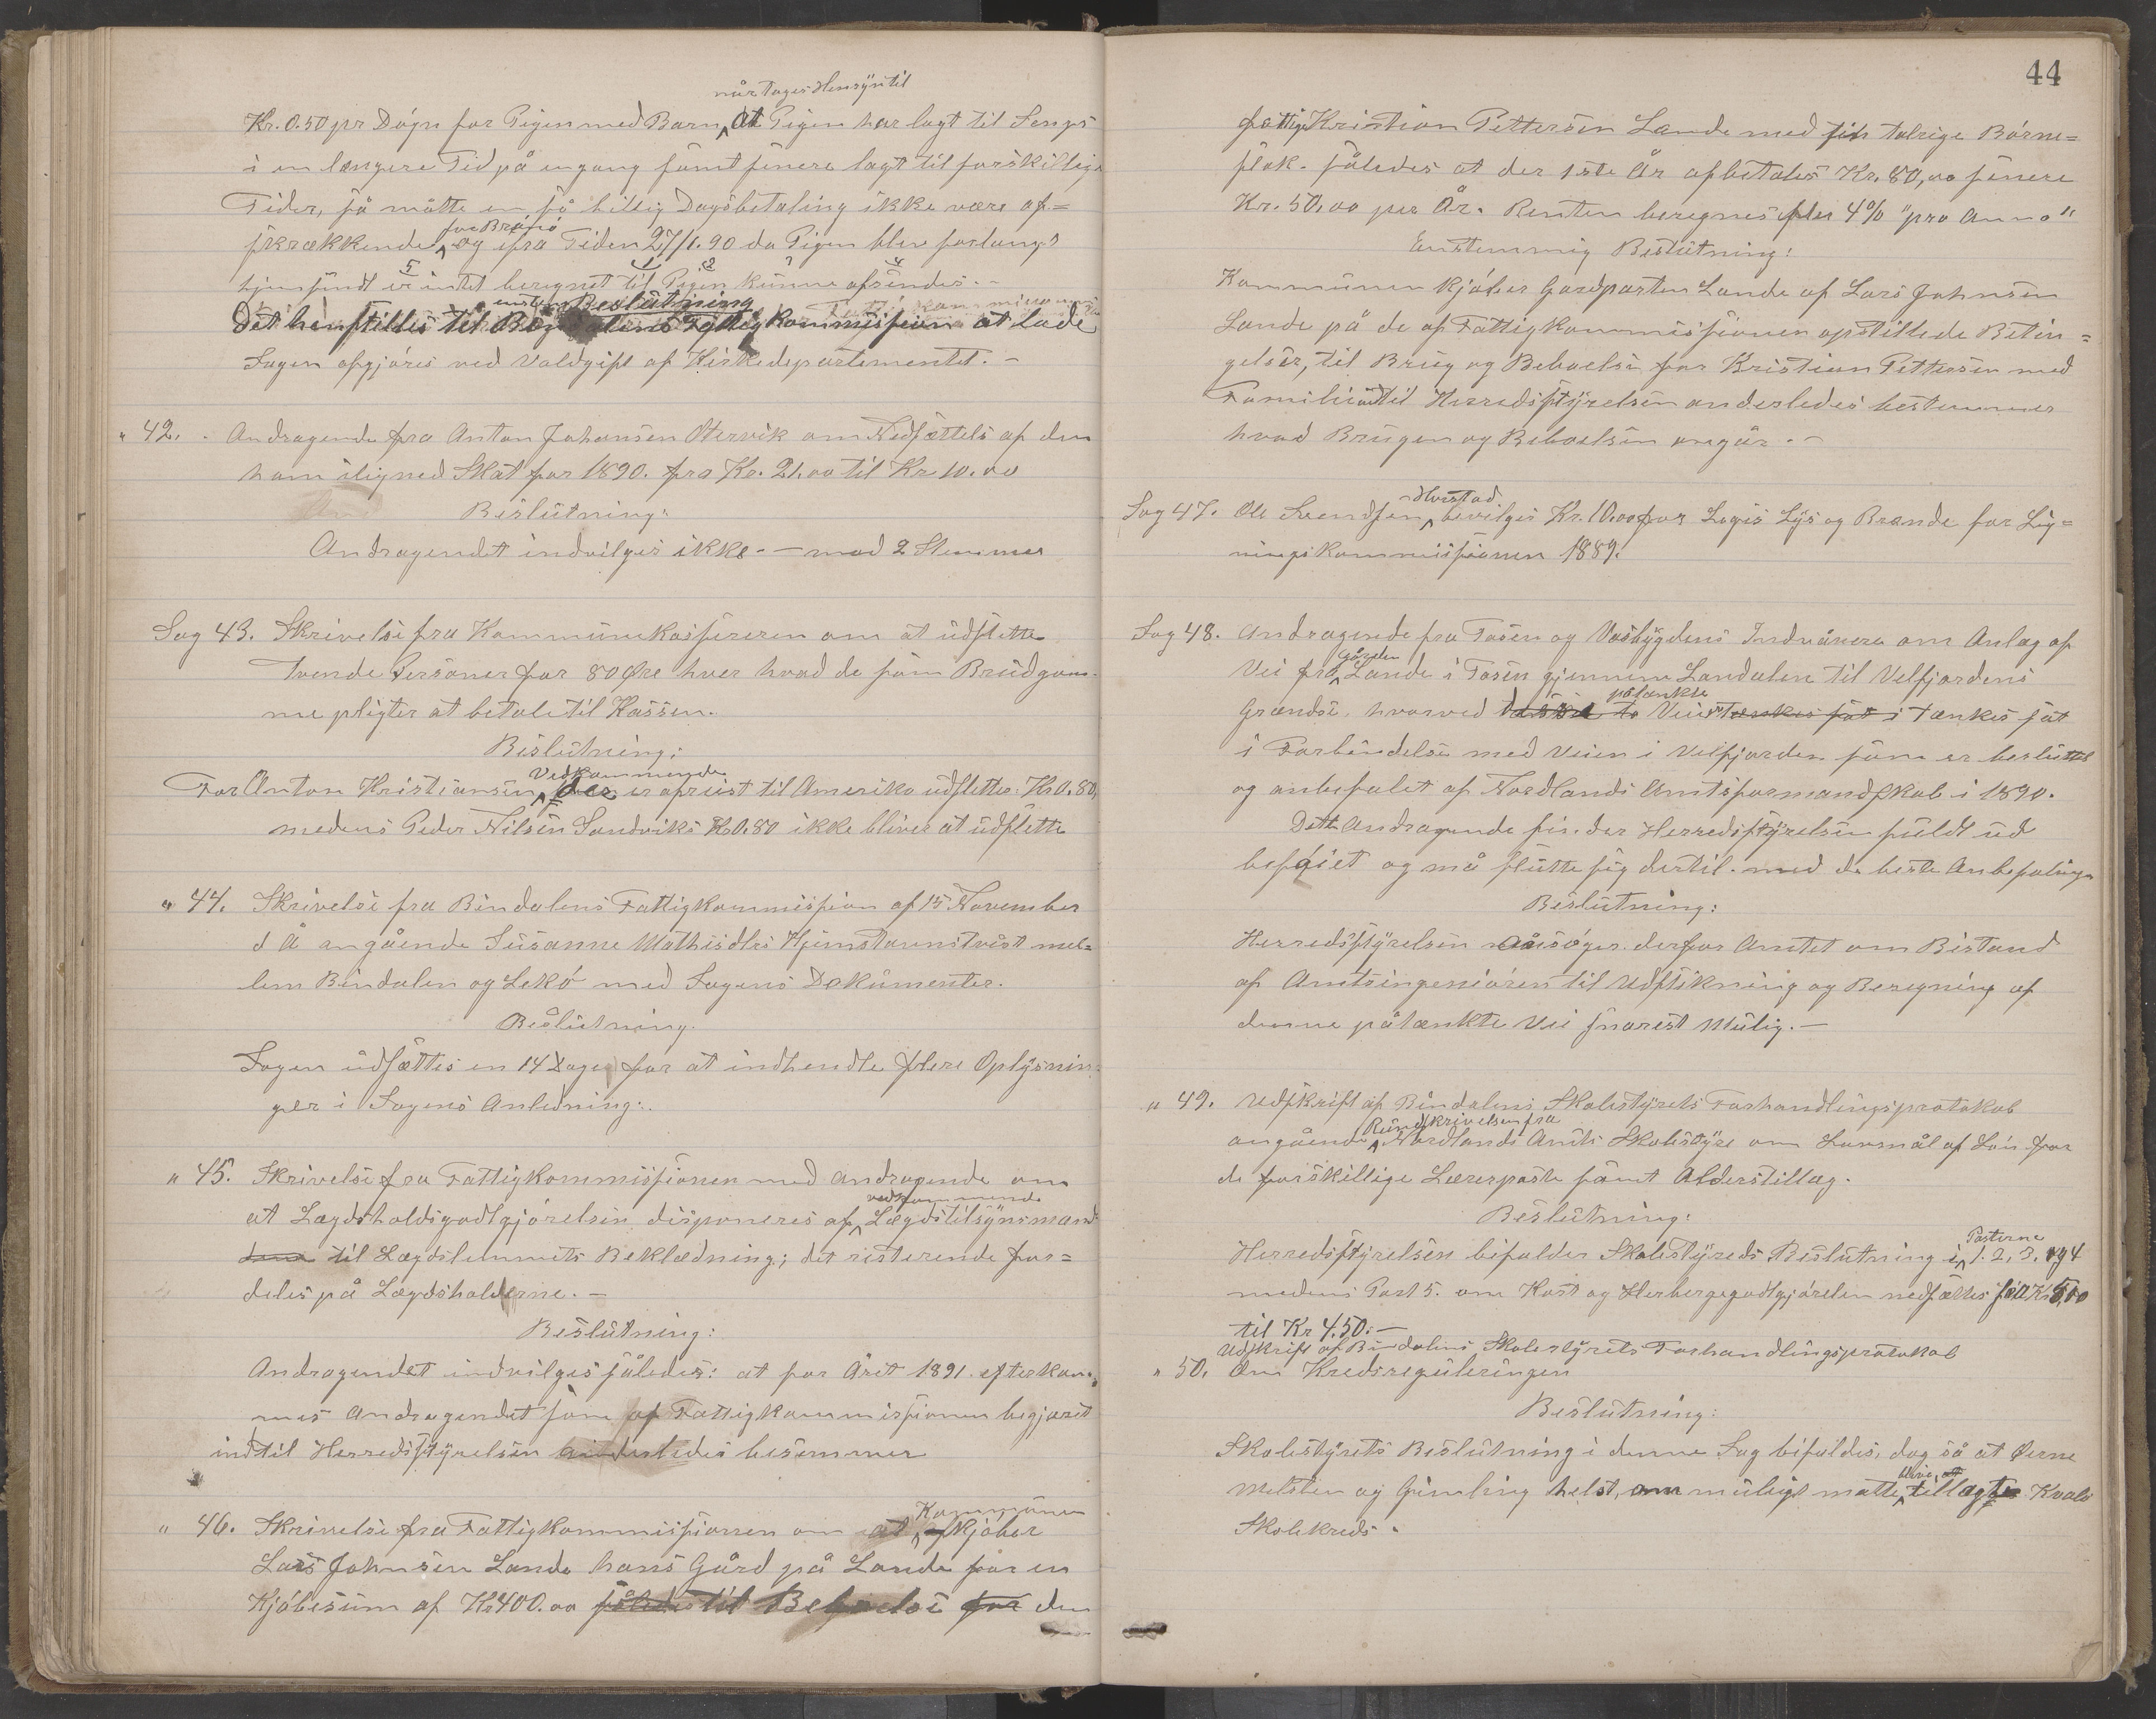 når tages Hensyn til
Kr. 0.50 pr Døgn for Pigen med Barn, at Pigen har lagt til Sengs
i en længere Tid på engang samt senere lagt til forskillige
Tider, så måtte en så billig Dagsbetaling ikke være af=
for Brønø
skrækkende og ifra Tiden 27/1.90 da Pigen blev forlangt
hjemsendt er intet beregnet til Pigen kunne afsendes.-
enst. Beslutning
Det henstilles til Fattigkommission at lade
Sagen afgjøres ved Voldgift af Kirkedepartementet. -
" 42. Andragende fra Anton Johansen Otervik om Nedsættelse af den
ham iligned Skat for 1890. fra Kr. 21.00 til Kr 10.00
Beslutning:
Andragendet indvilges ikke. - mod 2 Stemmer
Sag 43. Skrivelse fra Kommunekassereren om at udslette
tvende Personer for 80 Øre hver hvad de som Brudgom-
me pligter at betale til Kassen.
Beslutning:
Vedkommende
For Anton Kristiansen, der er afreist til Amerika udslettes Kr 0.80,
medens Peder Nilsen Sandviks Kr 0.80 ikke bliver at udslette
" 44. Skrivelse fra Bindalens Fattigkommission af 15 November
d Å angående Susanne Mathisdtrs Hjemstavnstvist mel=
lem Bindalen og Lekø med Sagens Dokumenter.
Beslutning.
Sagen udsættes en 14 Dage for at indhendte flere Oplysnin=
ger i Sagens Anledning:.
" 45. Skrivelse fra Fattigkommissionen med andragende om
vedkommende
at Lægdsholdsgodtgjørelsen disponeres af Lægdstilsynsmand
til Lægdslemmets Beklædning; det resterende for=
deles på Lægdsholderne. -
Beslutning:
Andragendet indvilges således: at for Året 1891. efterkom=
mes Andragendet som af Fattigkommissionen begjæret
indtil Herredsstyrelsen anderledes besemmer
Kommunen
" 46. Skrivelse fra Fattigkommissionen om at kjøber
Lars Johnsen Lande hans Gård på Lande for en
Kjøbesum af Kr 400.00 således til Beboelse for den
44
fattige Kristian Pettersen Lande med sin talrige Børne=
flok. således at der 1ste År afbetales Kr. 80,00 senere
Kr. 50.00 per År. Renten beregnes efter 4% "pro Anno"
Enstemmig Beslutning:
Kommunen kjøber Gardparten Lande af Lars Johnsen
Lande på de af Fattigkommissionen opstillede Betin=
gelser, til Brug og Beboelse for Kristian Pettersen med
Familie indtil Herredsstyrelsen anderledes bestemmer
hvad Brugen og Beboelsen angår. -
Horstad
Sag 47. Ole Svendsen bevilges Kr. 10.00 for Logis Lys og Brænde for Lig=
ningskommissionen 1889.
Sag 48. Andragende fra Tosen og Vasbygdens Indvånere om Anlæg af
Gården
Vei fra Lande i Tosen gjennem Landalen til Velfjordens
påtænkte
Grændse, hvorved Vei tænkes sat i tænkes sat
i Forbindelse med Veien i Velfjorden som er besluttet
og anbefalet af Nordlands Amtsformandskab i 1890.
Dette Andragende finder Herredsstyrelsen fuldt ud
beføiet og må slutte sig dertil. med de beste Anbefalinge
Beslutning:
Herredsstyrelsen ansøger derfor Amtet om Bistand
af Amtsingeniøren til Udstikning og Beregning af
denne påtænkte Vei snarest mulig. -
" 49. Udskrift af Bindalens Skolestyrets Forhandlingsprotokol
Rundskrivelsen fra
angående Nordlands Amts Skolestyre om Lavmål af Løn for
de forskillige Lærerposte samt Alderstillæg.
Beslutning:
Posterne
Herredsstyrelsen bifalder Skolestyreds Beslutning i 1. 2, 3. og 4
medens Post 5. om Kost og Herbergegodtgjørelen nedsættes fra Kr 5,00
til Kr 4.50. -
Udskrift af Bindalens Skolestyrets Forhandlingsprotokol
" 50. Om Kredsreguleringen
Beslutning:
Skolestyrets Beslutning i denne Sag bifaldes, dog så at Øerne
blive
Melsten og Gimling helst, om muligt måtte tillagt Kvals
Skolekreds.